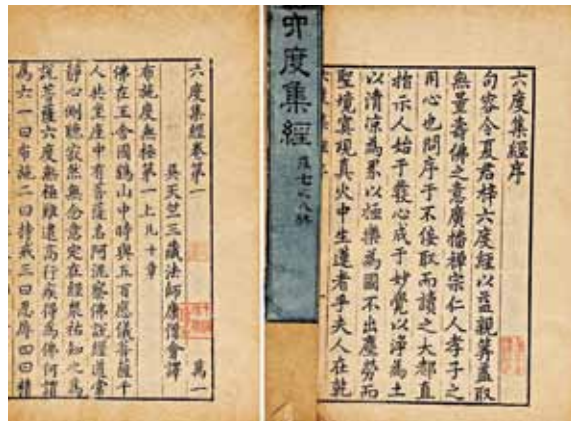 六度集經序
句容令夏君梓六度經以益親筭蓋取
無量壽佛之意廣播禪宗仁人孝子之
用心也問序于不佞取而讀之大都直
指示人始于發心成于妙覺以淨為土
以清涼為界以極樂為國不出塵勞而
聖境寘現真火中生蓮者乎夫人在乾
六度集經
六度集經卷第一
吳天竺三藏法師康僧會譯 萬一
布施度無極第一上凡十章
佛在王舍國鷂山中時與五百應儀菩薩千
人共坐座中有菩薩名阿泥察佛說經道常
靜心側聽寂然無念意定在經眾祐知之為
說菩薩六度無極難逮高行疾得為佛何謂
為六一曰布施二曰持戒三曰忍辱四曰精